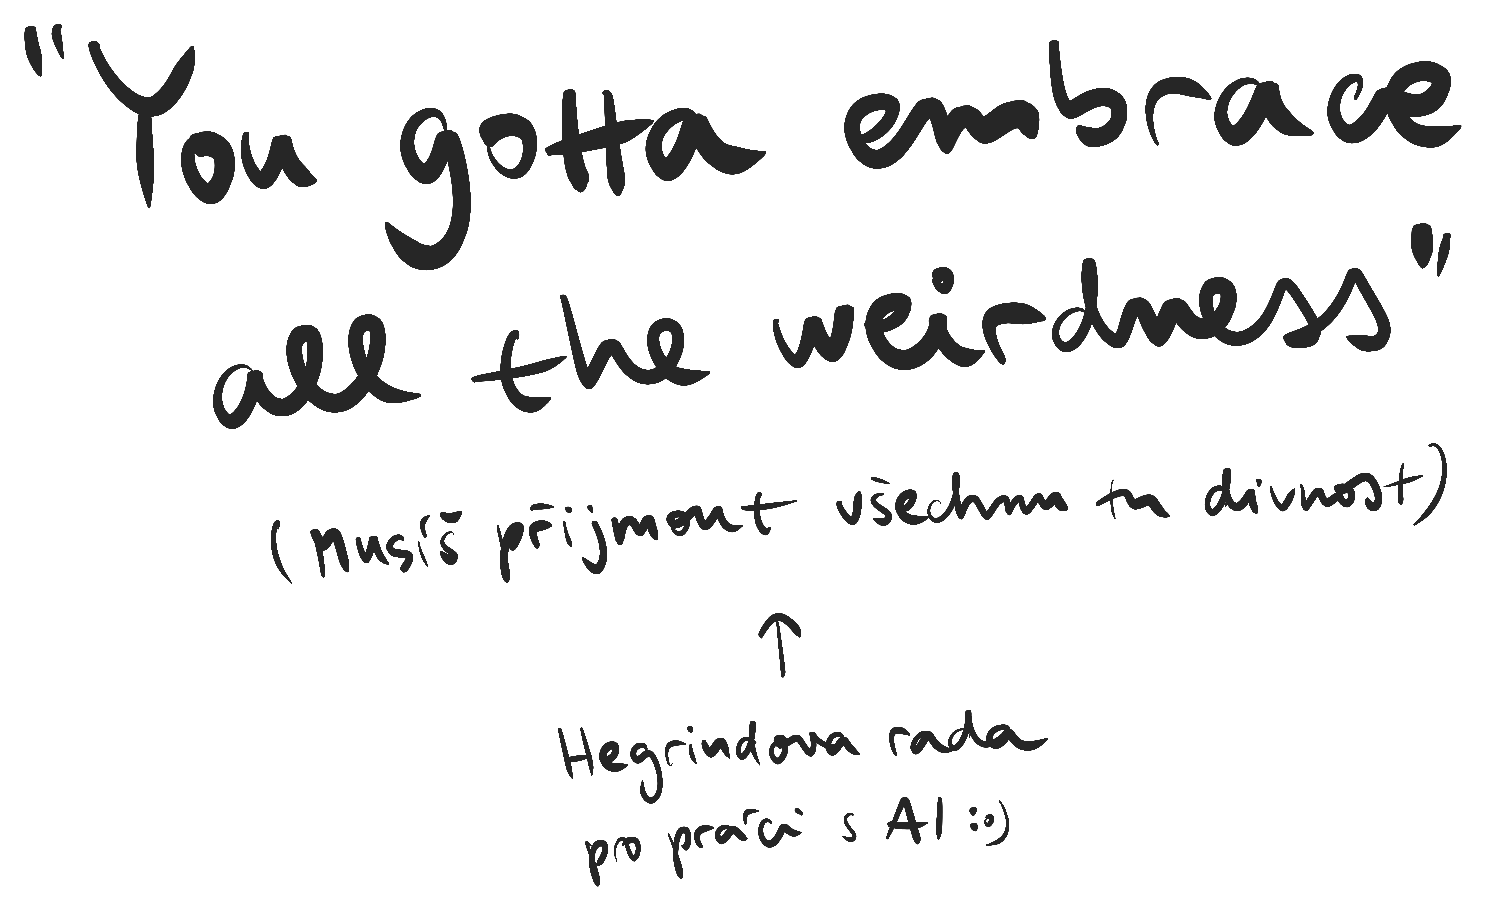 "You gotta embrace
all the weirdness"
(Musíš přijmout všechnu tu divnost)
↑
Hegrindova rada
pro práci s AI :o)